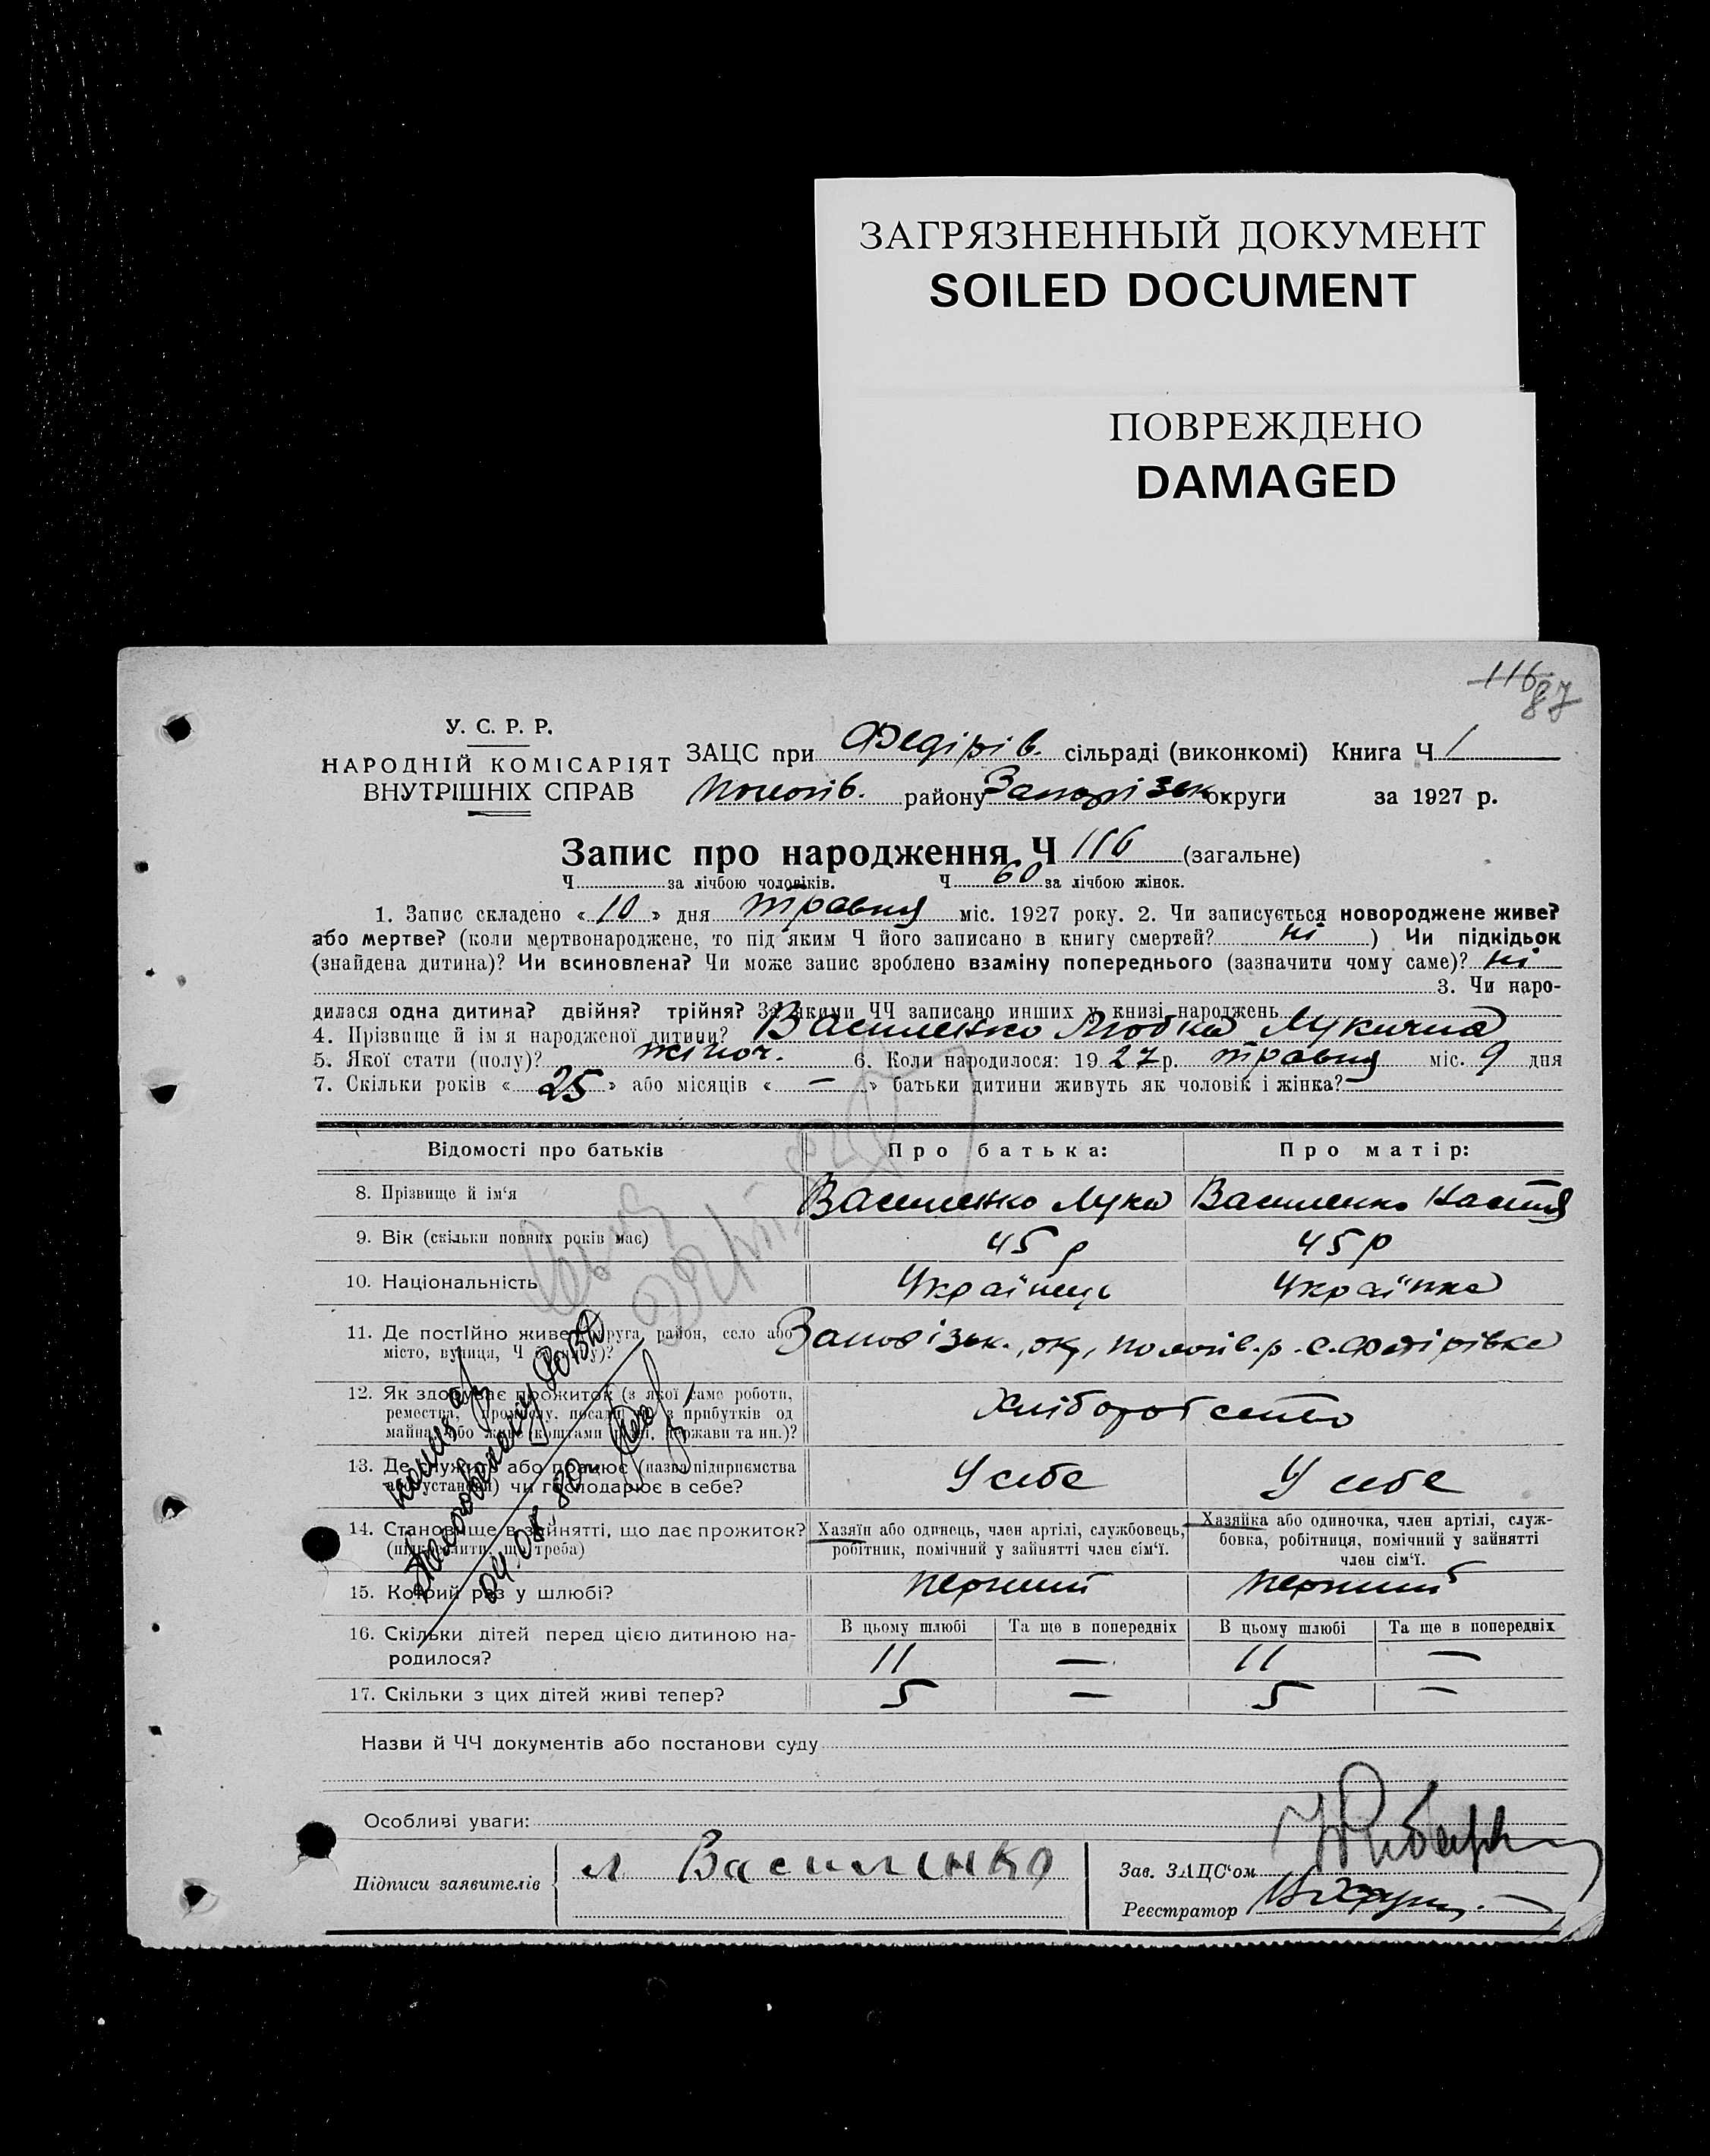 ЗАГРЯЗНЕННЫЙ ДОКУМЕНТ
SOILED DOCUMENT
ПОВРЕЖДЕНО
DAMAGED
116
87
У. С. Р. Р.
НАРОДНІЙ КОМІСАРІЯТ
ВНУТРІШНІХ СПРАВ
ЗАЦС при Федірів. сільраді (виконкомі) Книга Ч 1
Пологів. району Запорізьк округи за 1927 р.
Запис про народження Ч 116 (загальне)
Ч за лічбою чоловіків. Ч 60 за лічбою жінок.
1. Запис складено « 10 » дня травня міс. 1927 року. 2. Чи записується новороджене живе?
або мертве? (коли мертвонароджене, то під яким Ч його записано в книгу смертей? ні ) Чи підкідьок
(знайдена дитина)? Чи всиновлена? Чи може запис зроблено взаміну попереднього (зазначити чому саме)? ні
3. Чи наро-
дилася одна дитина? двійня? трійня? За якими ЧЧ записано инших у книзі народжень
4. Прізвище й ім я народженої дитини? Василенко Любка Лукична
5. Якої стати (полу)? жіноч. 6. Коли народилося: 1927 р. травня міс. 9 дня
7. Скільки років « 25 » або місяців « — » батьки дитини живуть як чоловік і жінка?
Відомості про батьків Про батька: Про матір:
8. Прізвище й ім'я Василенко Лука Василенко Настя
9. Вік (скільки повних років має) 45 р 45 р
10. Національність Українець Українка
11. Де постійно живе (округа, район, село або
місто, вулиця, Ч будинку)? Запорізьк., ок, пологів. р. с. Федірівка
12. Як здобуває прожиток (з якої саме роботи,
ремества, промислу, посади чи з прибутків од
майна або живе коштами рідні, держави та ин.)? Хліборобство
13. Де служить або працює (назва підприємства
або установи) чи господарює в себе? У себе У себе
14. Становище в зайнятті, що дає прожиток?
(підкреслити, що треба)
Хазяїн або одинець, член артілі, службовець,
робітник, помічний у зайнятті член сім'ї.
Хазяйка або одиночка, член артілі, служ-
бовка, робітниця, помічний у зайнятті
член сім'ї.
15. Котрий раз у шлюбі? перший перший
16. Скільки дітей перед цією дитиною на-
родилося?
В цьому шлюбі Та ще в попередніх В цьому шлюбі Та ще в попередніх
11 — 11 —
17. Скільки з цих дітей живі тепер? 5 — 5 —
Назви й ЧЧ документів або постанови суду
Особливі уваги:
Підписи заявителів л Василенко
Зав. ЗАЦС'ом
Реєстратор